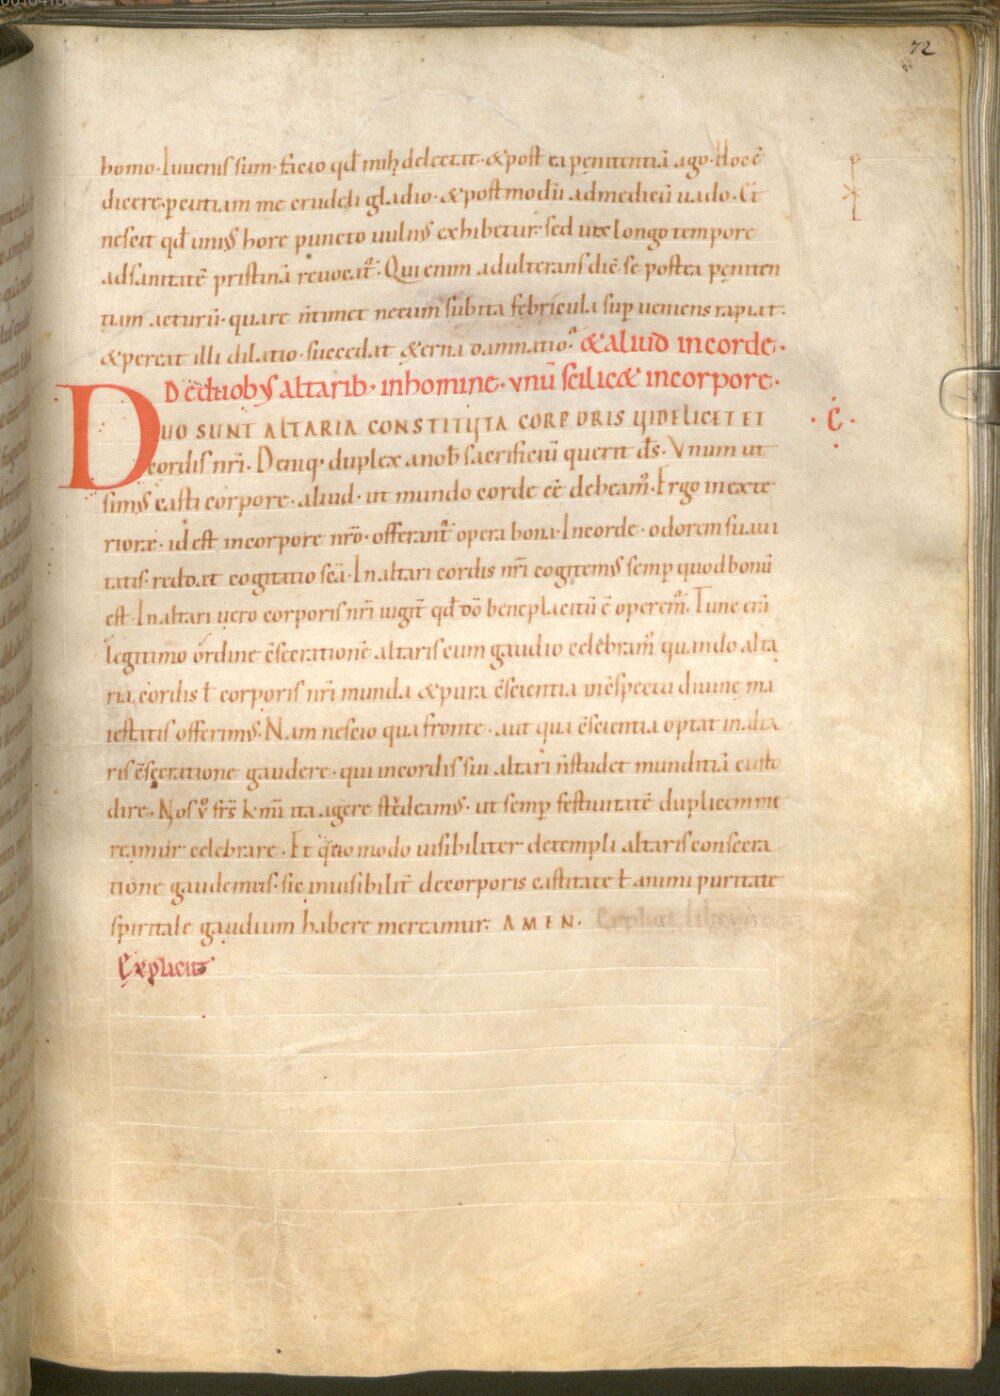 72
homo. Iuuenis sum. facio qđ mihi delectat. & post ea penitentiā ago. Hoc ē
dicere. pcutiam me crudeli gladio. & postmodū ad medicū uado. Et
nescit qđ unius hore puncto uulnus exhibetur. sed uix longo tempore
ad sanitatē pristinā reuocat᷑. Qui enim adulterans diē se postea peniten
tiam acturū. quare ñ timet ne eum subita febricula sup ueniens rapiat.
& pereat illi dilatio. succedat & erna damnatio. & aliud in corde.
De duobus altarib. in homine. vnū scilic& in corpore.
DUO SUNT ALTARIA CONSTITUTA CORPORIS UIDELICET ET
cordis nr̄i. Deniq; duplex a nob̄ sacrificiū querit d̄s. Vnum ut
simus casti corpore. aliud. ut mundo corde eē debeam᷑. Ergo in exte
riore. id est in corpore nr̄o. offerant᷑ opera bona. In corde. odorem suaui
tatis redoleat cogitatio scā. In altari cordis nr̄i cogitemus semp quod bonū
est. In altari uero corporis nr̄i iugit᷑ qđ d̄o beneplacitū ē operem᷑. Tunc enī
legitimo ordine c̄secrationē altaris cum gaudio celebram᷑ quando alta
ria cordis ł corporis nr̄i munda & pura c̄scientia in c̄spectu diuine ma
iestatis offerimus. Nam nescio qua fronte. aut qua c̄scientia optat in alta
ris c̄secratione gaudere. qui in cordis sui altari ñ studet munditiā custo
dire. Nos ů frs̄ k̄mi ita agere studeamus. ut semp festiuitatē duplicem me
reamur celebrare. Et quo modo uisibiliter de templi altaris consecra
tione gaudemus. sic inuisibilit᷑ de corporis castitate ł animi puritate
spiritale gaudium habere mereamur. AMEN.
Explicit